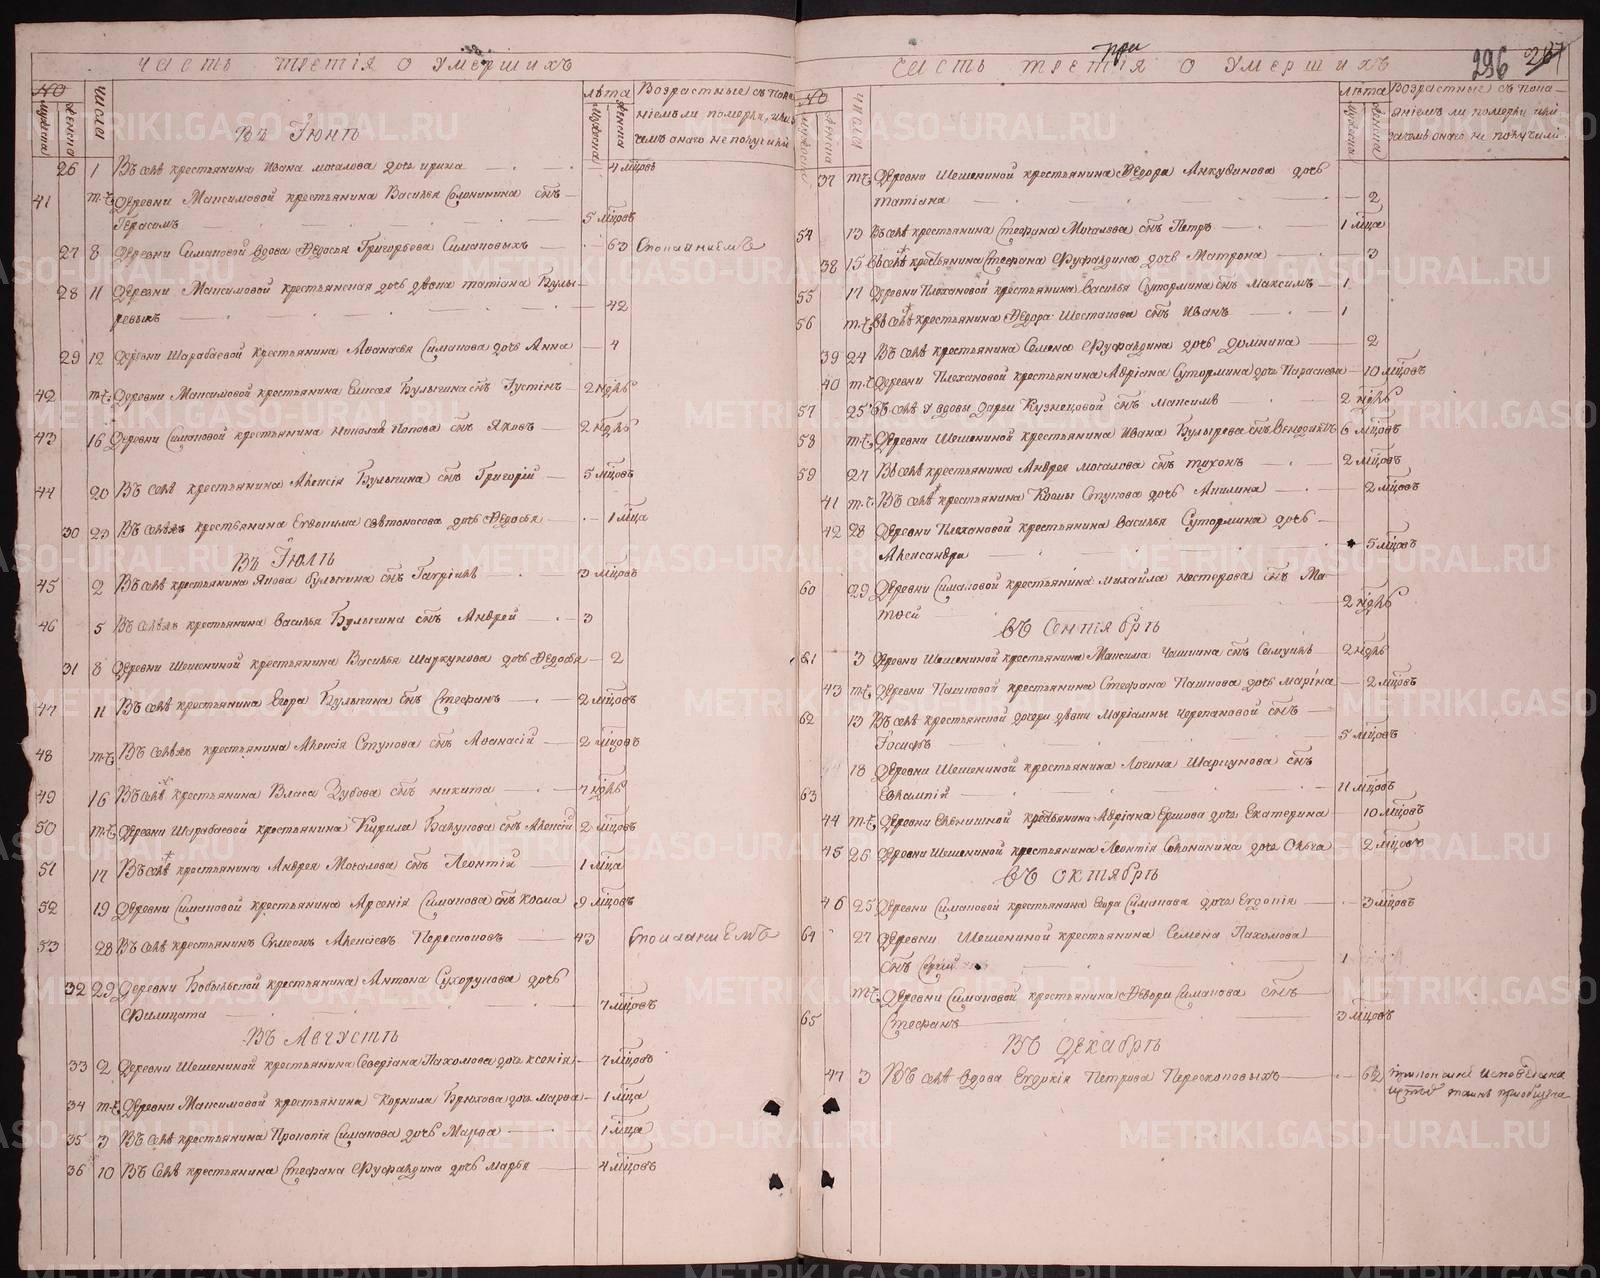 часть третія о умершихъ
№ Мужеска Женска числа лѣта Мужеска Женска Возрастные съ пока-
яніемъ ли померли, или
чемъ онаго не получили
Въ Іюнѣ
26 1 Въ селѣ крестьянина Ивана Мочалова дочь Ирина 4 мцовъ
41 т.ч. Деревни Максимовой крестьянина Василья Солонинина снъ
Герасимъ 5 мцовъ
27 8 Деревни Симановой вдова Федосья Григорьева Симановыхъ 63 Спокаяніемъ
28 11 Деревни Максимовой крестьянская дочь двъка Татіана Булы-
гевыхъ 42
29 12 Деревни Шарабаевой крестьянина Афанасья Симанова дочь Анна 4
42 т.ч. Деревни Максимовой крестьянина Елисея Булыгина снъ Іустинъ 2 ндль
43 16 Деревни Симановой крестьянина Николая Попова снъ Яковъ 2 ндль
44 20 Въ селѣ крестьянина Алексія Булыгина снъ Григорій 5 мцовъ
30 29 Въ селѣ крестьянина Евфимиа Автоносова дочь Федосья 1 мца
Въ Іюлѣ
45 2 Въ селѣ крестьянина Якова Булыгина снъ Гавріилъ 3 мцовъ
46 5 Въ селѣ крестьянина Василья Булыгина снъ Андрей 3
31 8 Деревни Шешениной крестьянина Василья Шаркунова дочь Федосья 2
47 11 Въ селѣ крестьянина Егора Булыгина снъ Стефанъ 2 мцовъ
48 т.ч. Въ селѣ крестьянина Алексія Ступова снъ Афанасій 2 мцовъ
49 16 Въ селѣ крестьянина Власа Зубова снъ Никита 7 ндль
50 т.ч. Деревни Шарабаевой крестьянина Кирила Бакунова снъ Алексій 2 мцовъ
51 17 Въ селѣ крестьянина Андрея Мочалова снъ Леонтій 1 мца
52 19 Деревни Симановой крестьянина Арсенія Симанова снъ Косма 9 мцовъ
53 28 Въ селѣ крестьянинъ Симеонъ Алексіевъ Пересконовъ 43 Спокаяніемъ
32 29 Деревни Бобыльской крестьянина Антона Сухорукова дочь
Филицата 7 мцовъ
Въ Августѣ
33 2 Деревни Шешениной крестьянина Северіана Пахомова дочь Ксенія 7 мцовъ
34 т.ч. Деревни Максимовой крестьянина Корнила Брюхова дочь Марфа 1 мца
35 3 Въ селѣ крестьянина Прокопія Симанова дочь Марфа 1 мца
36 10 Въ селѣ крестьянина Стефана Фуфалдина дочь Марья 4 мцовъ
при
часть третія о умершихъ 296 287
№ Мужеска Женска числа лѣта Мужеска Женска Возрастные съ пока-
яніемъ ли померли или
чемъ онаго не получили
37 т.ч. Деревни Шешениной крестьянина Федора Анкудинова дочь
Татіана 2
54 13 Въ селѣ крестьянина Стефана Мочалова снъ Петръ 1 мца
38 15 Въ селѣ крестьянина Стефана Фуфалдина дочь Матрона 3
55 17 Деревни Плехановой крестьянина Василья Сутормина снъ Максимъ 1
56 т.ч. Въ селѣ крестьянина Федора Шестакова снъ Иванъ 1
39 24 Въ селѣ крестьянина Семена Фуфалдина дочь Домника 2
40 т.ч. Деревни Плехановой крестьянина Адріана Сутормина дочь Параскева 10 мцовъ
57 25 Въ селѣ у вдовы Дарьи Кузнецовой снъ Максимъ 2 ндль
58 т.ч. Деревни Шешениной крестьянина Ивана Булырова снъ Венедиктъ 6 мцовъ
59 27 Въ селѣ крестьянина Андрея Мочалова снъ Тихонъ 2 мцовъ
41 т.ч. Въ селѣ крестьянина Космы Ступова дочь Акилина 2 мцовъ
42 28 Деревни Плехановой крестьянина Василья Сутормина дочь
Александра 5 мцовъ
60 29 Деревни Симановой крестьянина Михайла Нестерова снъ Ма-
тфей 2 ндль
Въ Сентябрѣ
61 3 Деревни Шешениной крестьянина Максима Чашина снъ Самуилъ 2 ндль
43 т.ч. Деревни Пашковой крестьянина Стефана Пашкова дочь Марина 2 мцовъ
62 13 Въ селѣ крестьянской дочери двъки Маріамны Черепановой снъ
Іосифъ 5 мцовъ
63 18 Деревни Шешениной крестьянина Логина Шаркунова снъ
Евлампій 11 мцовъ
44 т.ч. Деревни Елкишной крестьянина Адріана Ершова дочь Екатерина 10 мцовъ
45 26 Деревни Шешениной крестьянина Леонтія Солонинина дочь Ольга 2 мцовъ
Въ Октябрѣ
46 25 Деревни Симановой крестьянина Егора Симанова дочь Евдокія 3 мцовъ
64 27 Деревни Шешениной крестьянина Семена Пахомова
снъ Сергій 1
65 т.ч. Деревни Симановой крестьянина Федора Симанова снъ
Стефанъ 3 мцовъ
Въ Декабрѣ
47 3 Въ селѣ вдова Евдокія Петрова Пересконовыхъ 62 исповедана
таинъ приобщена
METRIKI.GASO-URAL.RU